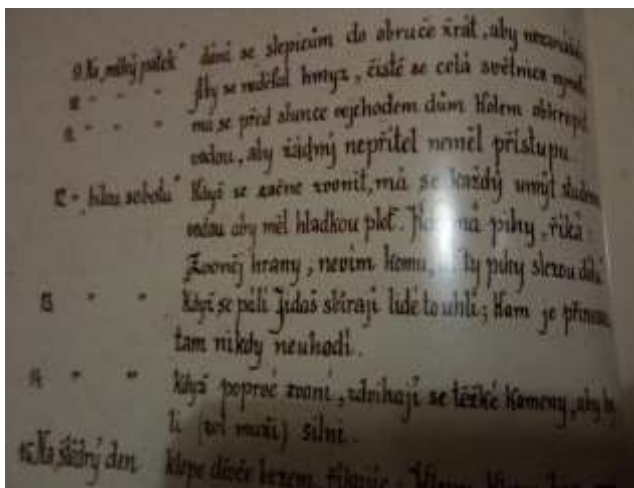 9. Na „velký pátek" dává se slepicím do obruče žrát, aby nezanášely
10 " " " Aby se nedělal hmyz, čistě se celá světnice
11 " " " má se před slunce vejchodem dům kolem
vodou, aby žádný nepřítel neměl přístupu.
12 - „bílou sobotu" Když se začne zvonit, má se každý umýt
vodou aby měl hladkou pleť. má pihy, říká:
Zvoněj hrany, nevím komu, pihy slezou
13 " " Když se pálí Jidáš sbírají lidé to uhlí; kam je
tam nikdy neuhodí.
14 " " když poprvé zvoní, zdvihají se těžké kameny, aby
li muži) silní.
15. Na štědrý den klepe děvče bezem